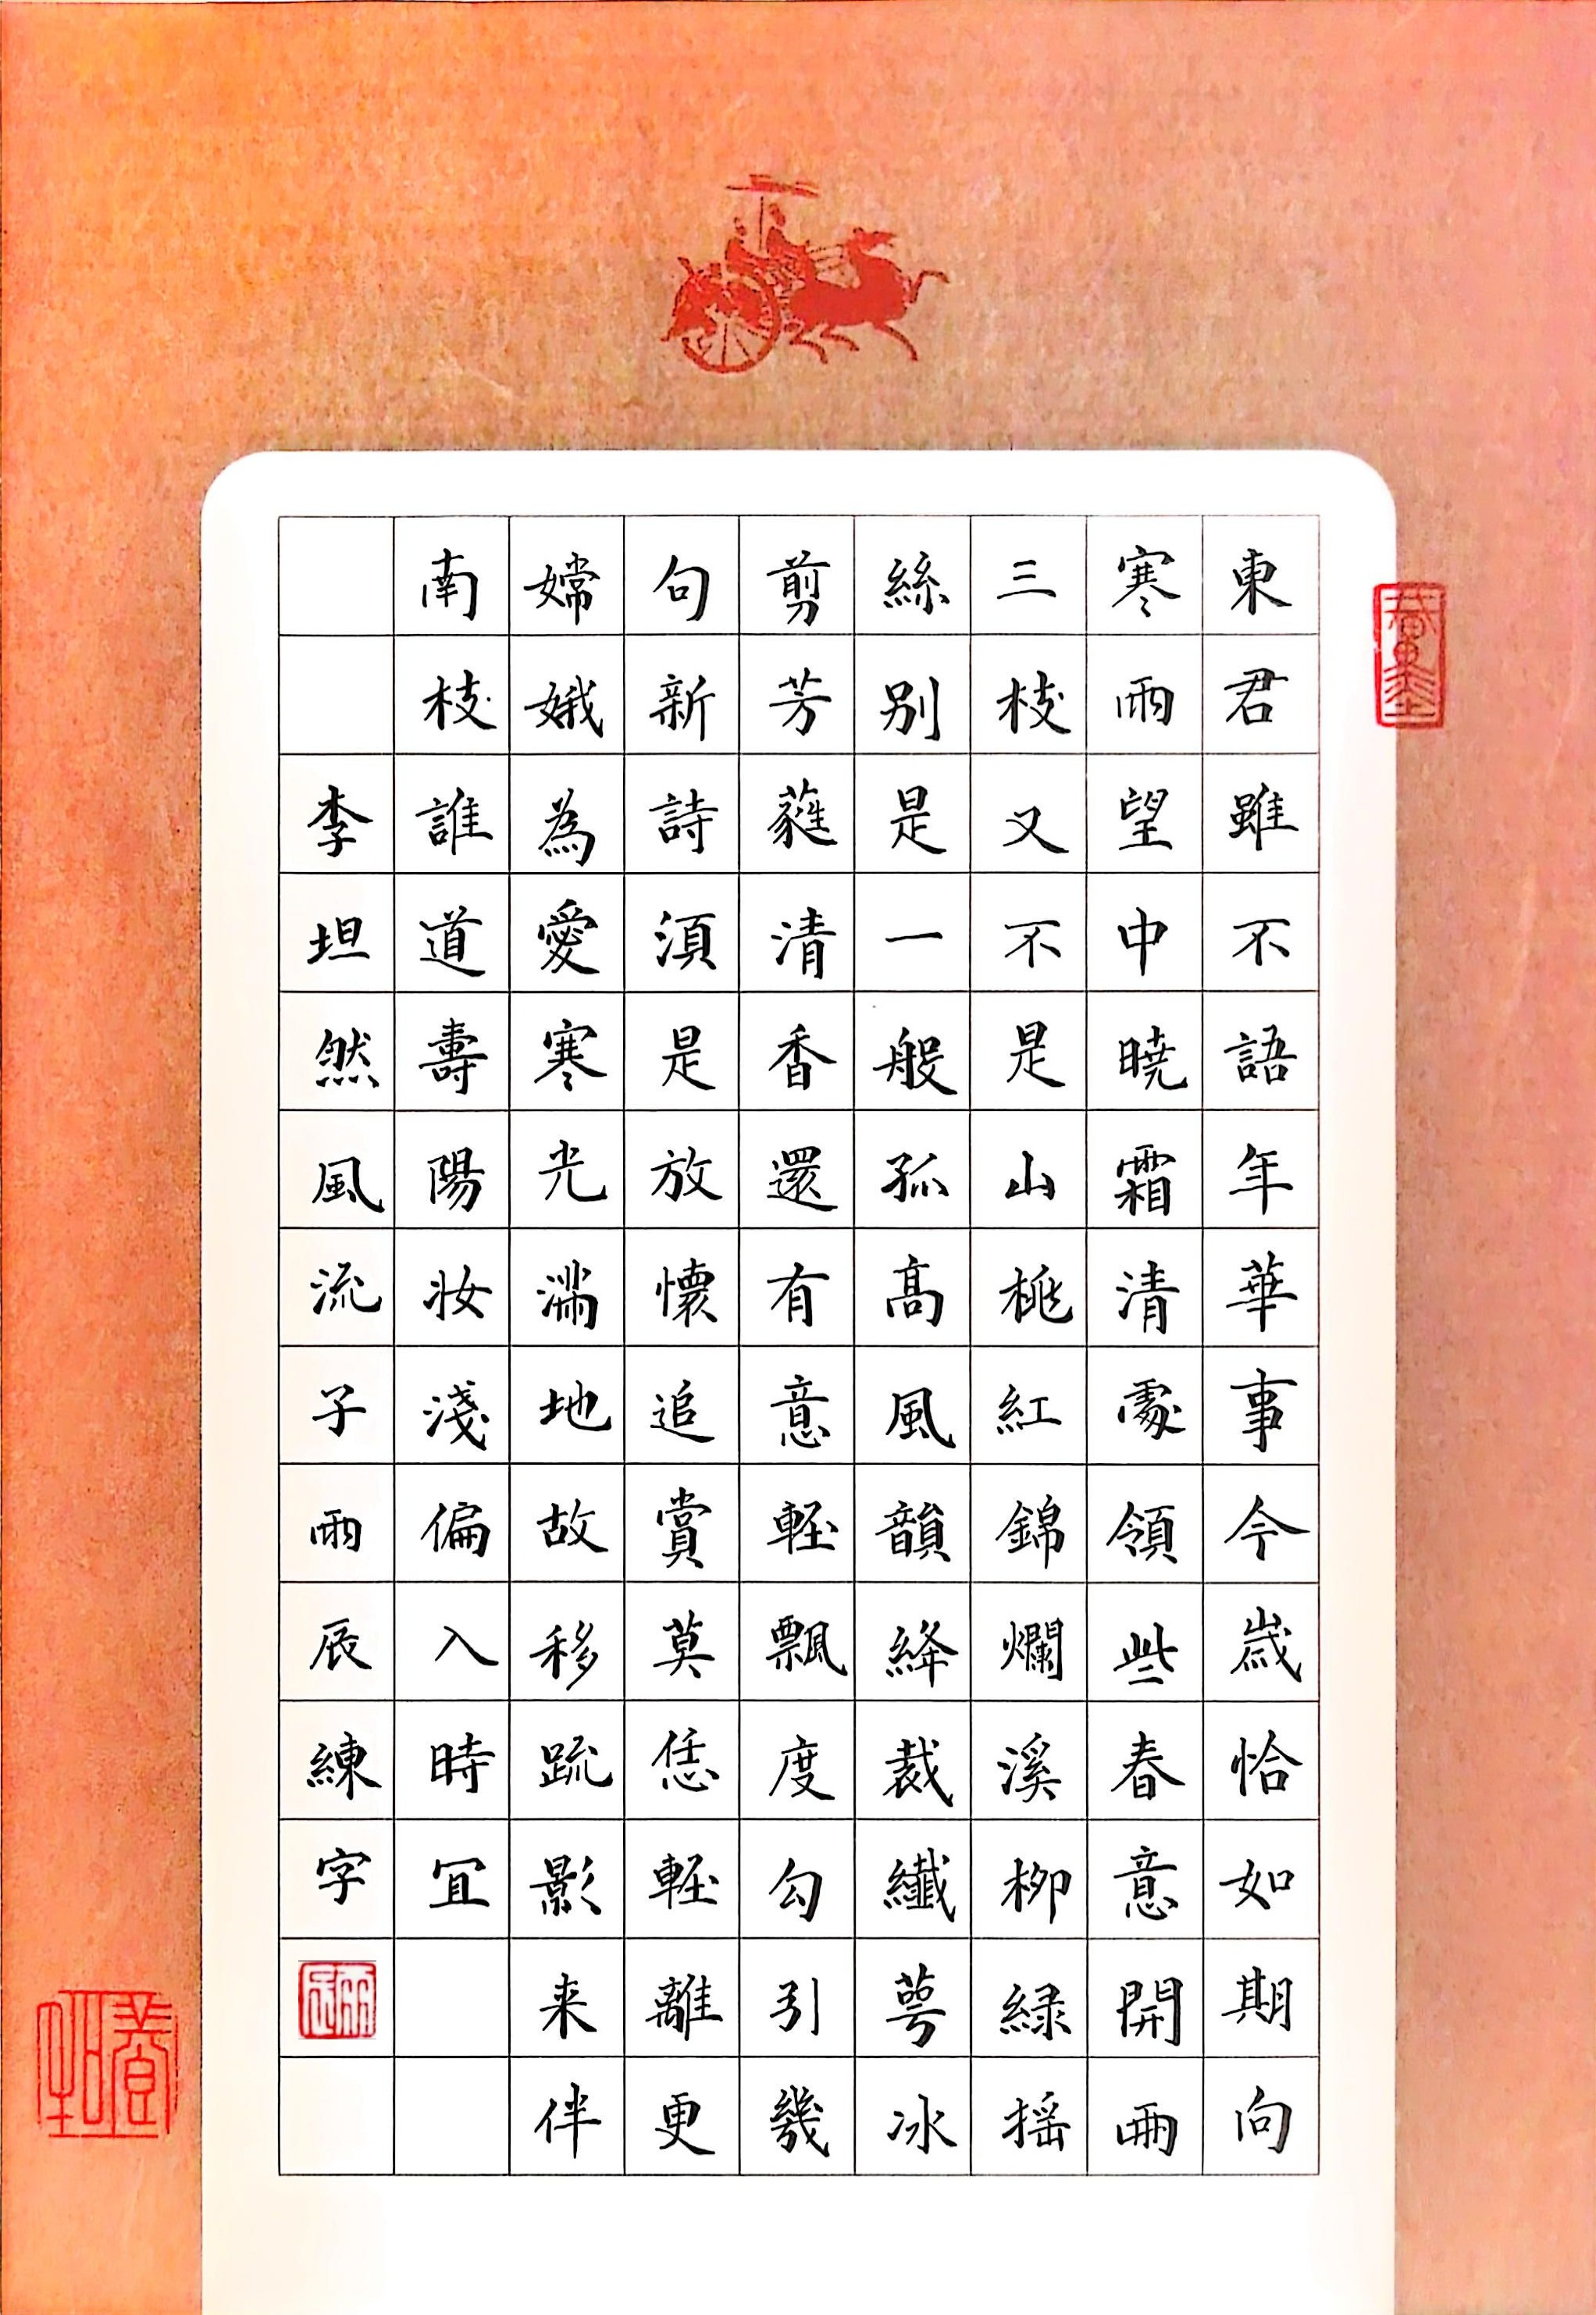 東君雖不語年華事今歲恰如期向
寒雨望中曉霜清處領些春意開兩
三枝又不是山桃紅錦爛溪柳綠搖
絲別是一般孤高風韻絳裁纖萼冰
剪芳蕤清香還有意輕飄度勾引幾
句新詩須是放懷追賞莫恁輕離更
嫦娥為愛寒光滿地故移疏影來伴
南枝誰道壽陽妝淺偏入時宜
李坦然風流子雨辰練字
雨辰